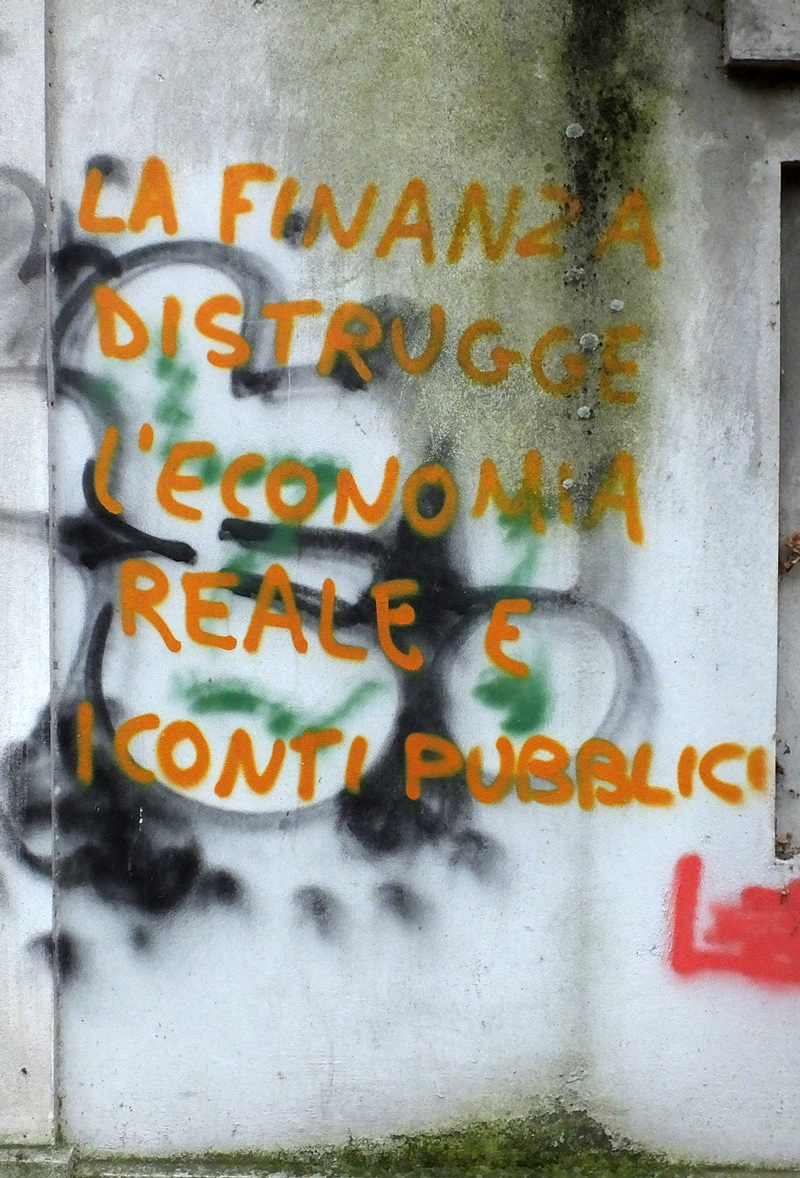 LA FINANZA
DISTRUGGE
l'ECONOMiA
REALE E
I CONTI PUBBLICI